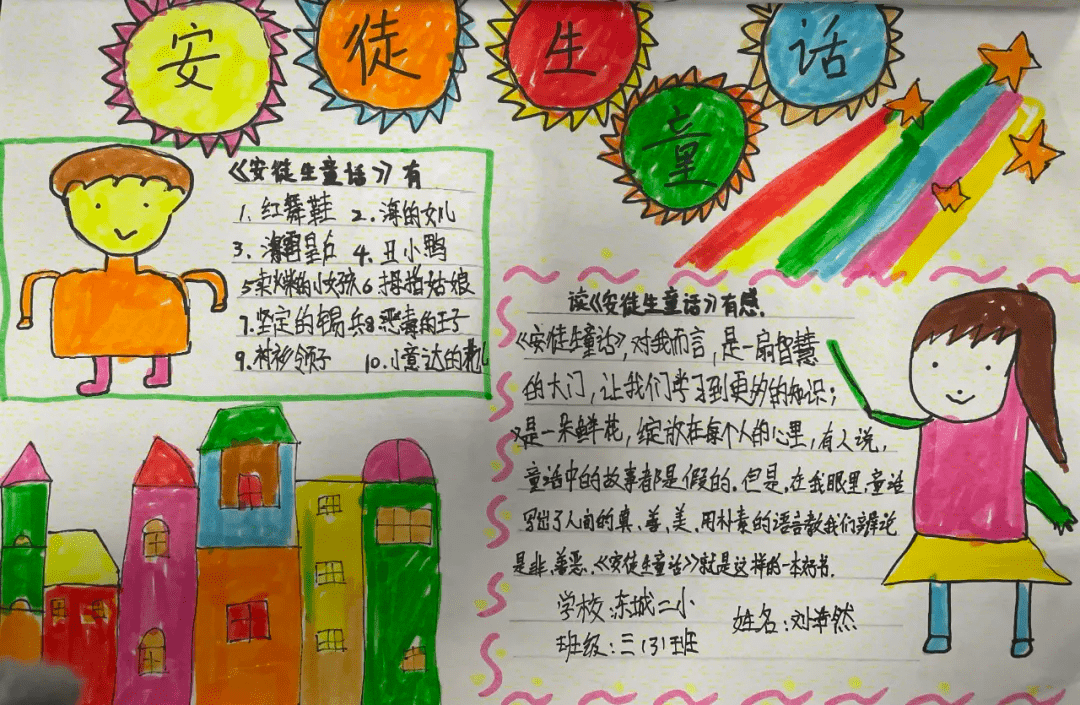 安徒生童话
《安徒生童话》有
1. 红舞鞋 2. 海的女儿
3. 4. 丑小鸭
5卖火柴的小女孩 6 拇指姑娘
7. 坚定的锡兵 8 恶毒的王子
9. 衬衫领子 10. 小意达的花儿
读《安徒生童话》有感.
《安徒生童话》,对我而言,是一扇智慧
的大门,让我们学习到更多的知识;
又是一朵鲜花,绽放在每个人的心里,有人说,
童话中的故事都是假的.但是,在我眼里,童话
写出了人间的真、善、美、用朴素的语言教我们辩论
是非、善恶,《安徒生童话》就是这样的一本好书.
学校:东城二小
姓名:刘浩然
班级:三(3)班